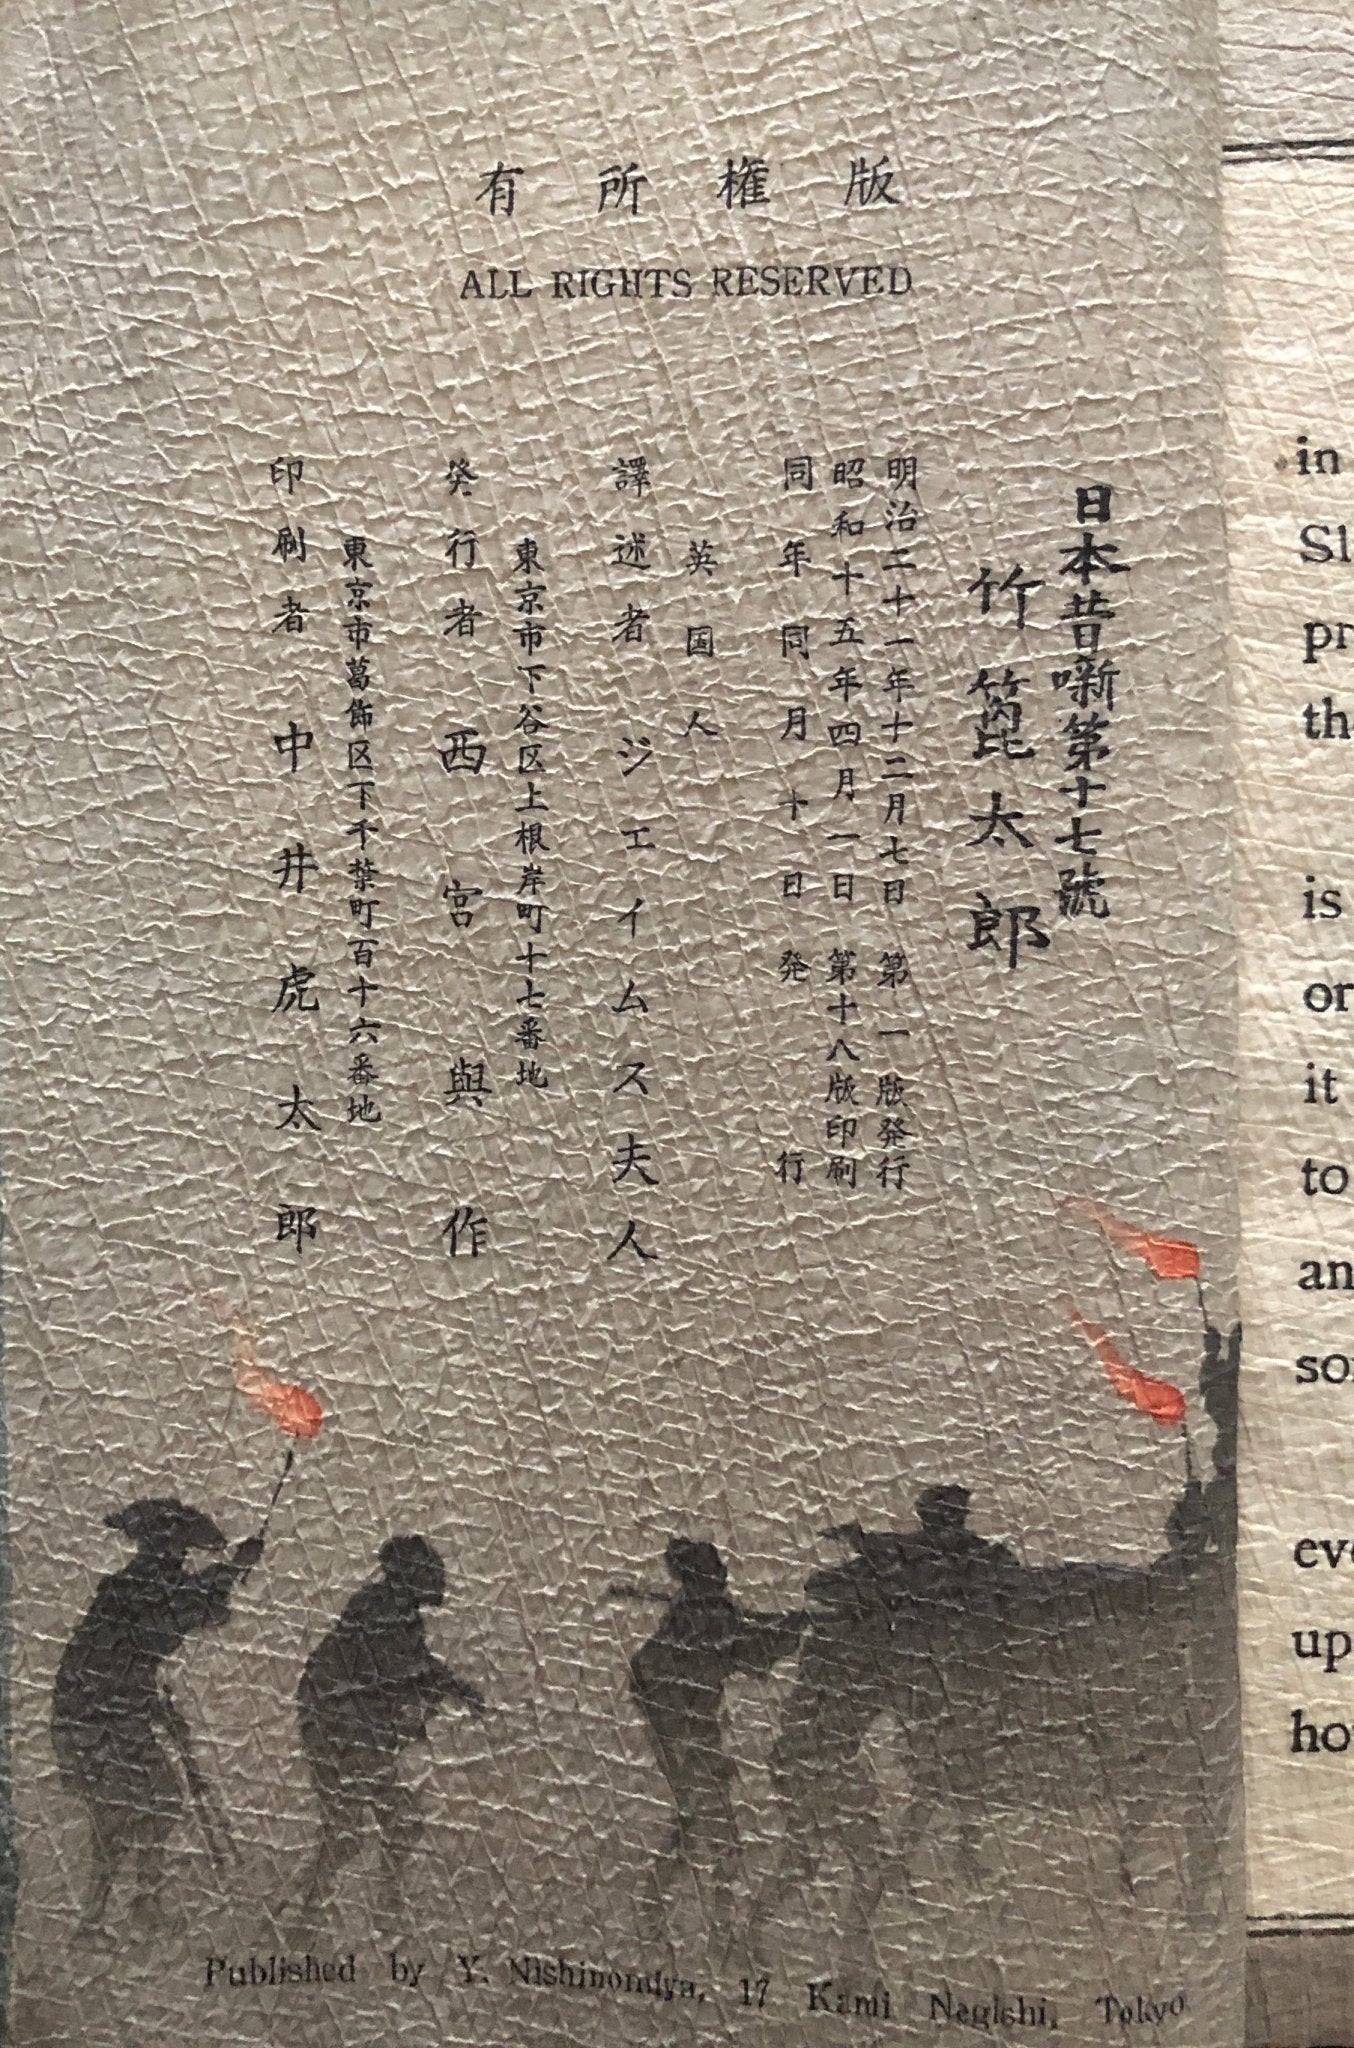 版権所有
ALL RIGHTS RESERVED
日本昔噺第十七號
竹箆太郎
明治二十一年十二月七日 第一版発行
昭和十五年四月一日 第十八版印刷
同年同月十日 発行
英国人
譯述者 ジエイムス夫人
東京市下谷区上根岸町十七番地
発行者 西宮與作
東京市葛飾区下千葉町百十六番地
印刷者 中井虎太郎
Published by Y. Nishinomiya, 17 Kami Negishi, Tokyo
in
is
it
to